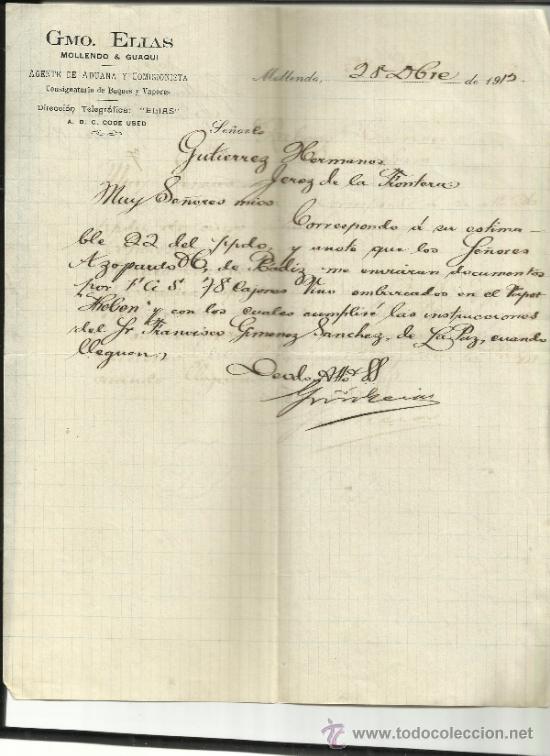 GMO. ELIAS
MOLLENDO & GUAQUI
AGENTE DE ADUANA Y COMISIONISTA
Consignatario de Buques y Vapores
Dirección Telegráfica: "ELIAS"
A. B. C. CODE USED
Mollendo, 28 Dbre de 1915
Señores
Gutierrez Hermanos
Jerez de la Frontera
Muy Señores mios
Correspondo á su estima-
ble 22 del ppdo, y anoté que los Señores
Azopardo & Co, de Cádiz me enviaran documentos
por 78 Cajones Vino embarcados en el Vapor
y con los cuales cumpliré las instrucciones
del Sr. Francisco Gimenez Sanchez, de La Paz, cuando
lleguen,
www.todocoleccion.net